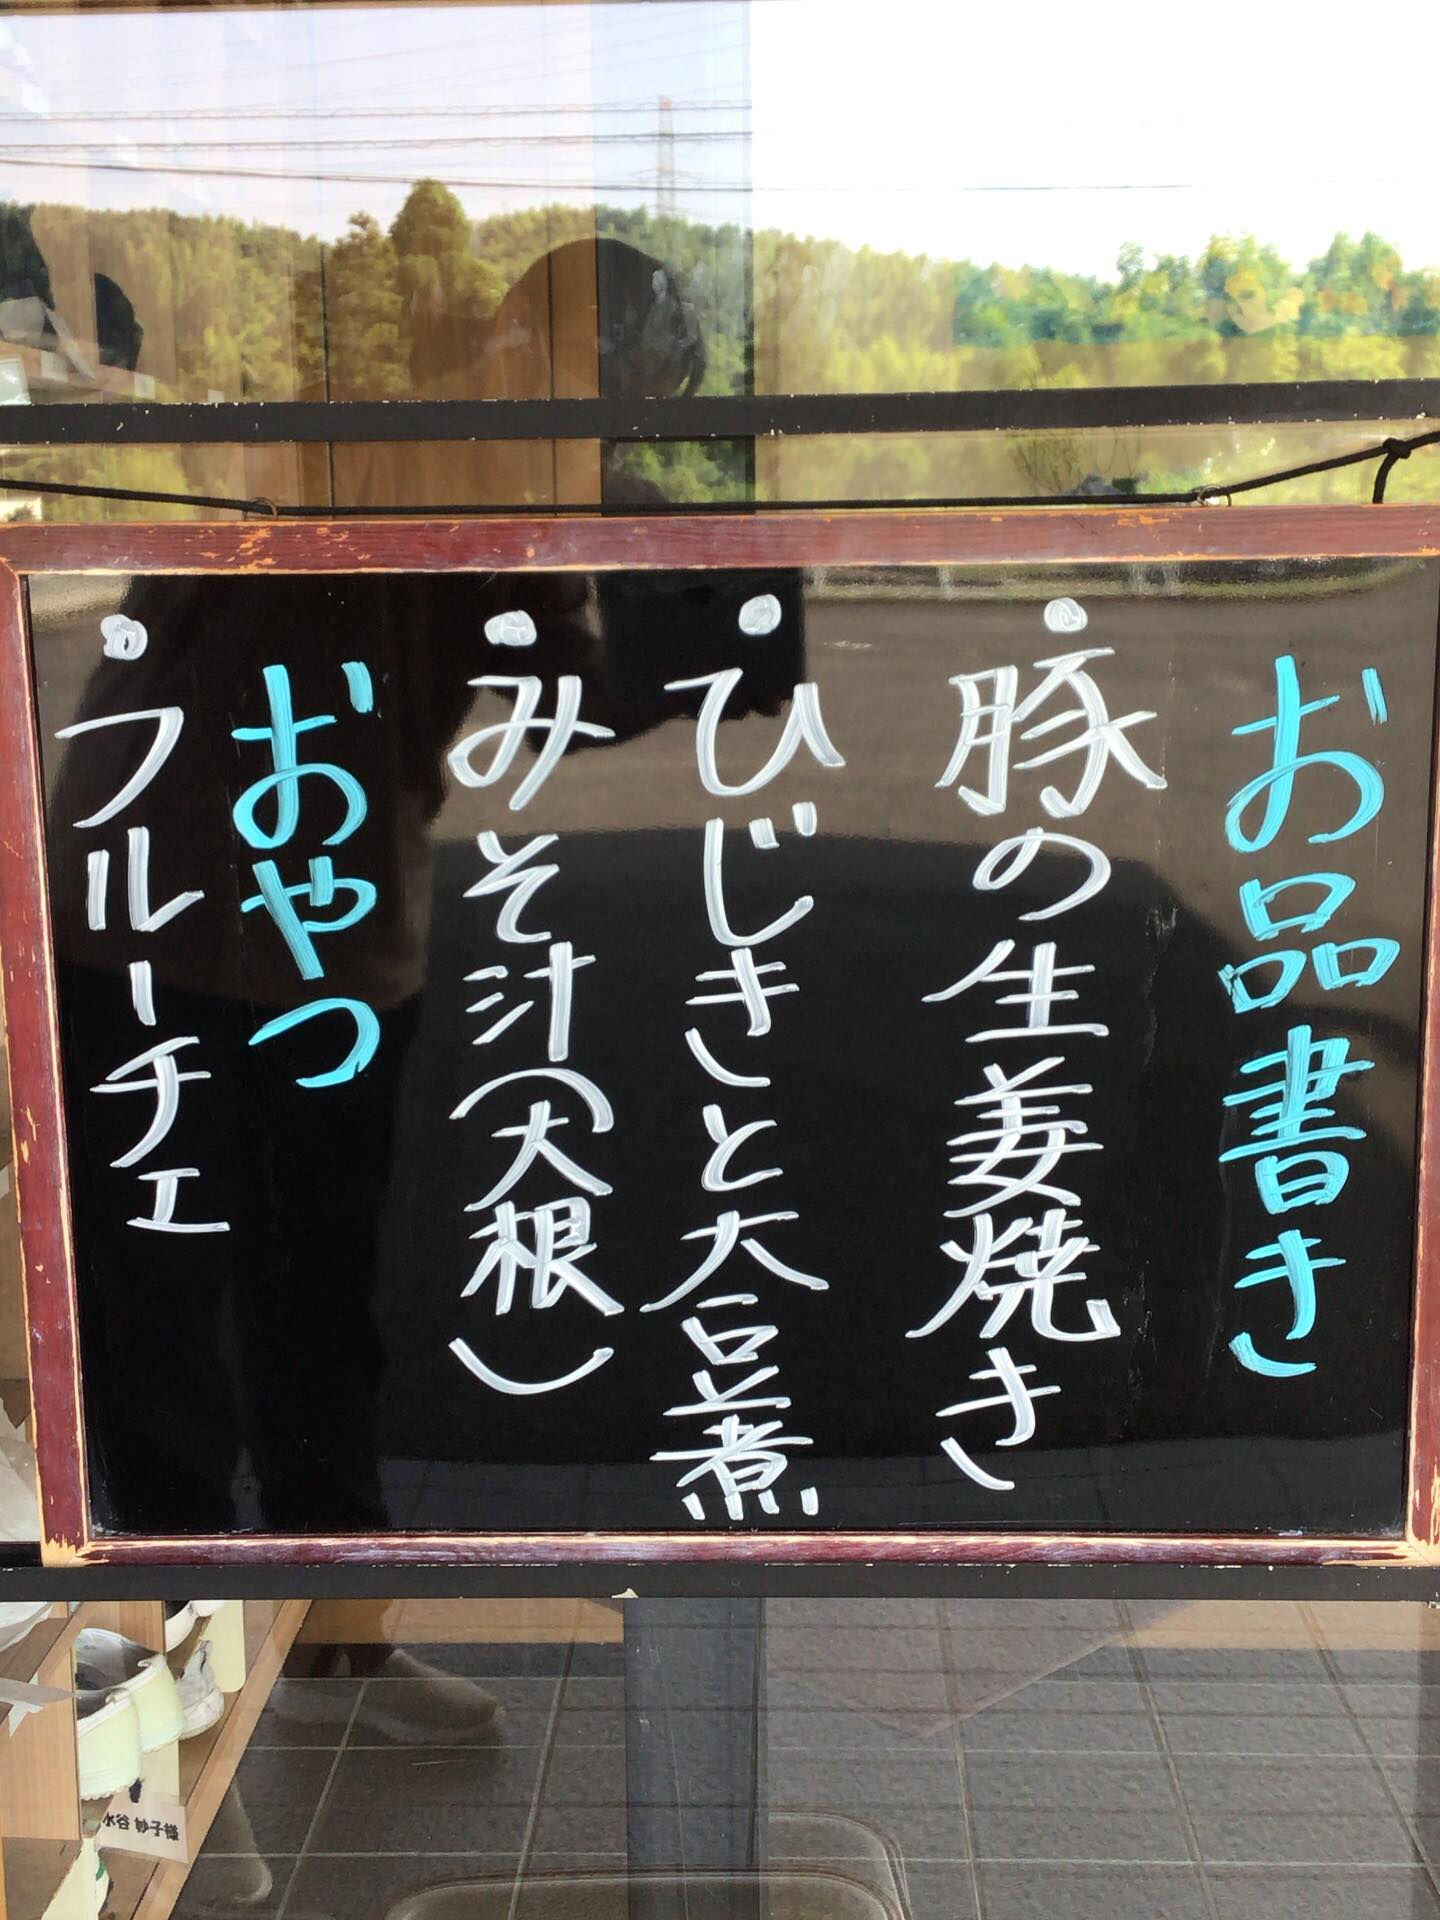 お品書き
・豚の生姜焼き
・ひじきと大豆煮
・みそ汁(大根)
おやつ
・フルーチェ
水谷 妙子様